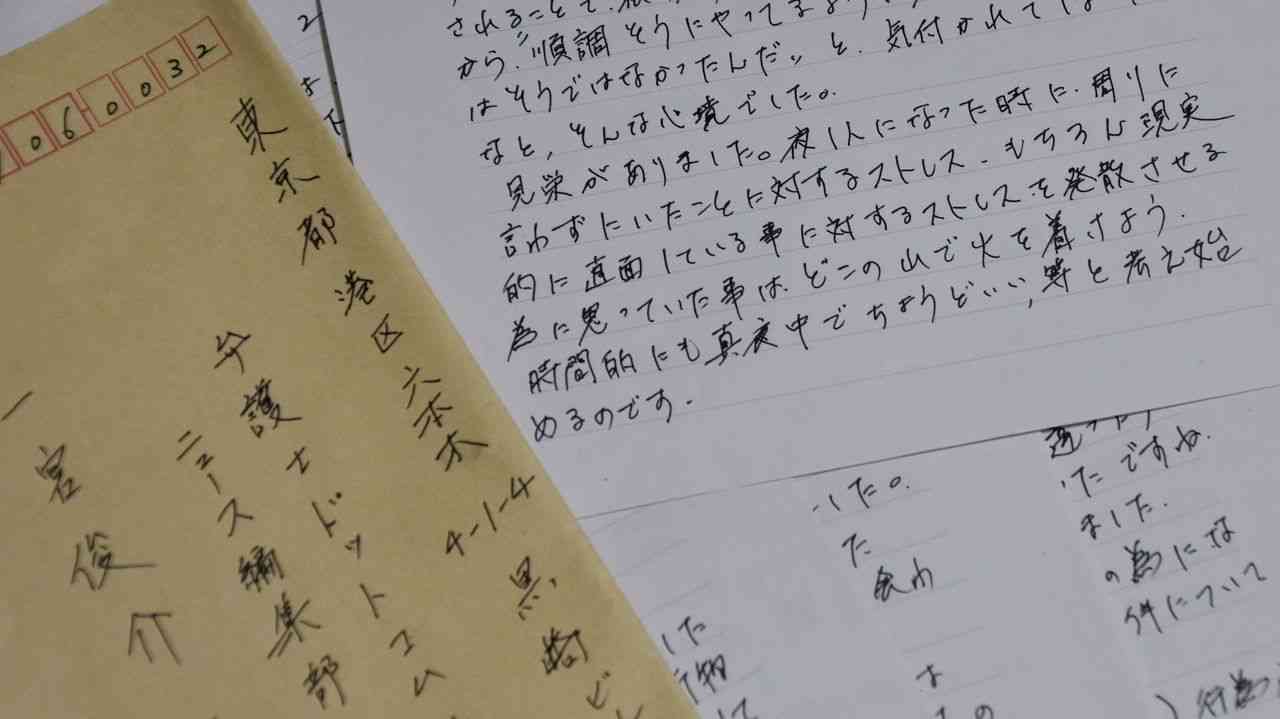 060032
東京都港区六本木
4-1-4 黒崎ビ
弁護士ドットコム
ニュース編集部
一宮俊介
されることで、
から、"順調そうにやってるよう
はそうではなかったんだ"と、気付かれては
なと、そんな心境でした。
見栄がありました。夜1人になった時に、周りに
言わずにいたことに対するストレス、もちろん現実
的に直面している事に対するストレスを発散させる
為に思っていた事は、どこの山で火を着けよう、
時間的にも真夜中でちょうどいい、等と考え始
めるのです。
いたですね。
ました。
の為にな
件について
行為
した。
た
会わ
した
物
して